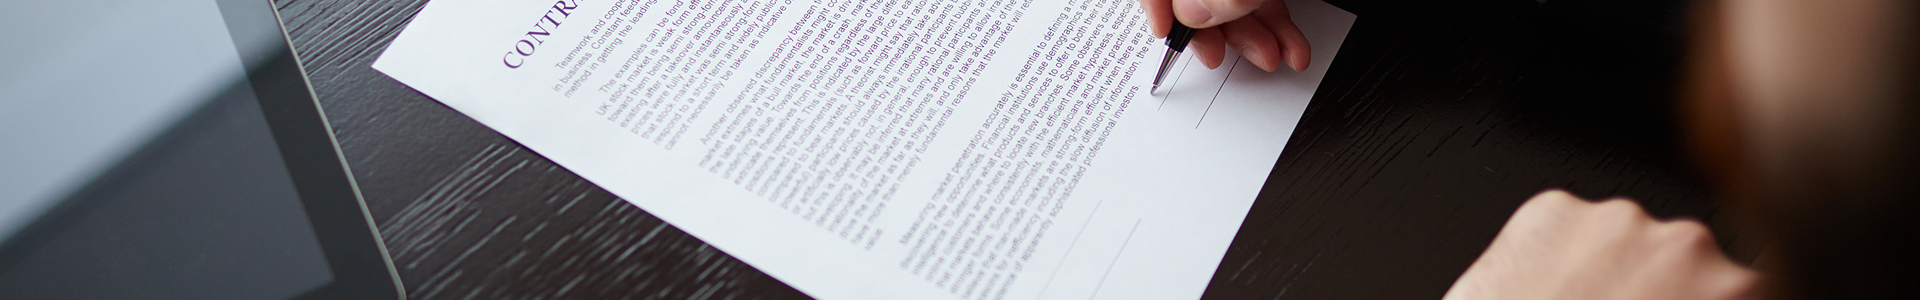 CONTRA
Teamwork and coope
in business. Constant feed
method in getting the leading
The examples can be fond
UK stock market is weak form eff
toward them being semi strong form
existing after a takeover announceme
prices were fully and instantaneously
that stock market was semi strong form
respond to a short term and widely public
cannot necessarily be taken as indicative o
Another observed discrepancy between the
market extremes what fundamentalists might co
late stages of a bull market, the market is driv
underlying value. Towards the end of a crash, mark
extricate themselves from positions regardless of the
positions represent. This is indicated by the large differ
compared to fundamentals (such as forward price to ea
compared to bear markets. A theorist might say that ratio
participants should always immediately take adva
or artificially low prices caused by the irrational participants
but this is observably not, in general, enough to prevent bubb
developing. It may be inferred that many rational participants
irrationality of the market at extremes and are willing to allow irra
drive the market as far as they will, and only take advantage of the
have more than merely fundamental reasons that the market will ret
value.
Measuring market penetration accurately is essential to defining a m
delivering new opportunities. Financial institutions use demographics and
intelligence to determine what products and services to offer to both their
online customers and where to locate new branches. Some observers dispute
that markets behave consistently with the efficient market hypothesis, especial
stronger forms. Some economists, mathematicians and market practitioners
believe that man-made markets are strong-form efficient when there are
reasons for inefficiency including the slow diffusion of information, the re
of apparently sophisticated professional investors.